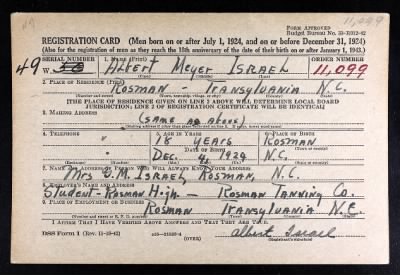 11,099
FORM APPROVED
Budget Bureau No. 33-R012-42
REGISTRATION CARD (Men born on or after July 1, 1924, and on or before December 31, 1924)
(Also for the registration of men as they reach the 18th anniversary of the date of their birth on or after January 1, 1943.)
SERIAL NUMBER 1. NAME (Print) ORDER NUMBER
49 W. Albert Meyer Israel 11,099
(First) (Middle) (Last)
2. PLACE OF RESIDENCE (Print)
Rosman - Transylvania N.C.
(Number and street) (Town, township, village, or city) (County) (State)
[THE PLACE OF RESIDENCE GIVEN ON LINE 2 ABOVE WILL DETERMINE LOCAL BOARD
JURISDICTION; LINE 2 OF REGISTRATION CERTIFICATE WILL BE IDENTICAL]
3. MAILING ADDRESS
(Same as above)
[Mailing address if other than place indicated on line 2. If same, insert word same]
4. TELEPHONE 5. AGE IN YEARS 6. PLACE OF BIRTH
18 years Rosman
DATE OF BIRTH
Dec. 4, 1924 N.C.
(Exchange) (Number) (Mo.) (Day) (Yr.) (State or country)
7. NAME AND ADDRESS OF PERSON WHO WILL ALWAYS KNOW YOUR ADDRESS
Mrs W.M. Israel, Rosman, N.C.
8. EMPLOYER'S NAME AND ADDRESS
Student-Rosman High - Rosman Tanning Co.
9. PLACE OF EMPLOYMENT OR BUSINESS
Rosman Transylvania N.C.
(Number and street or R. F. D. number) (Town) (County) (State)
I AFFIRM THAT I HAVE VERIFIED ABOVE ANSWERS AND THAT THEY ARE TRUE.
DSS Form 1 (Rev. 11-16-42) (OVER) Albert Israel
(Registrant's signature)